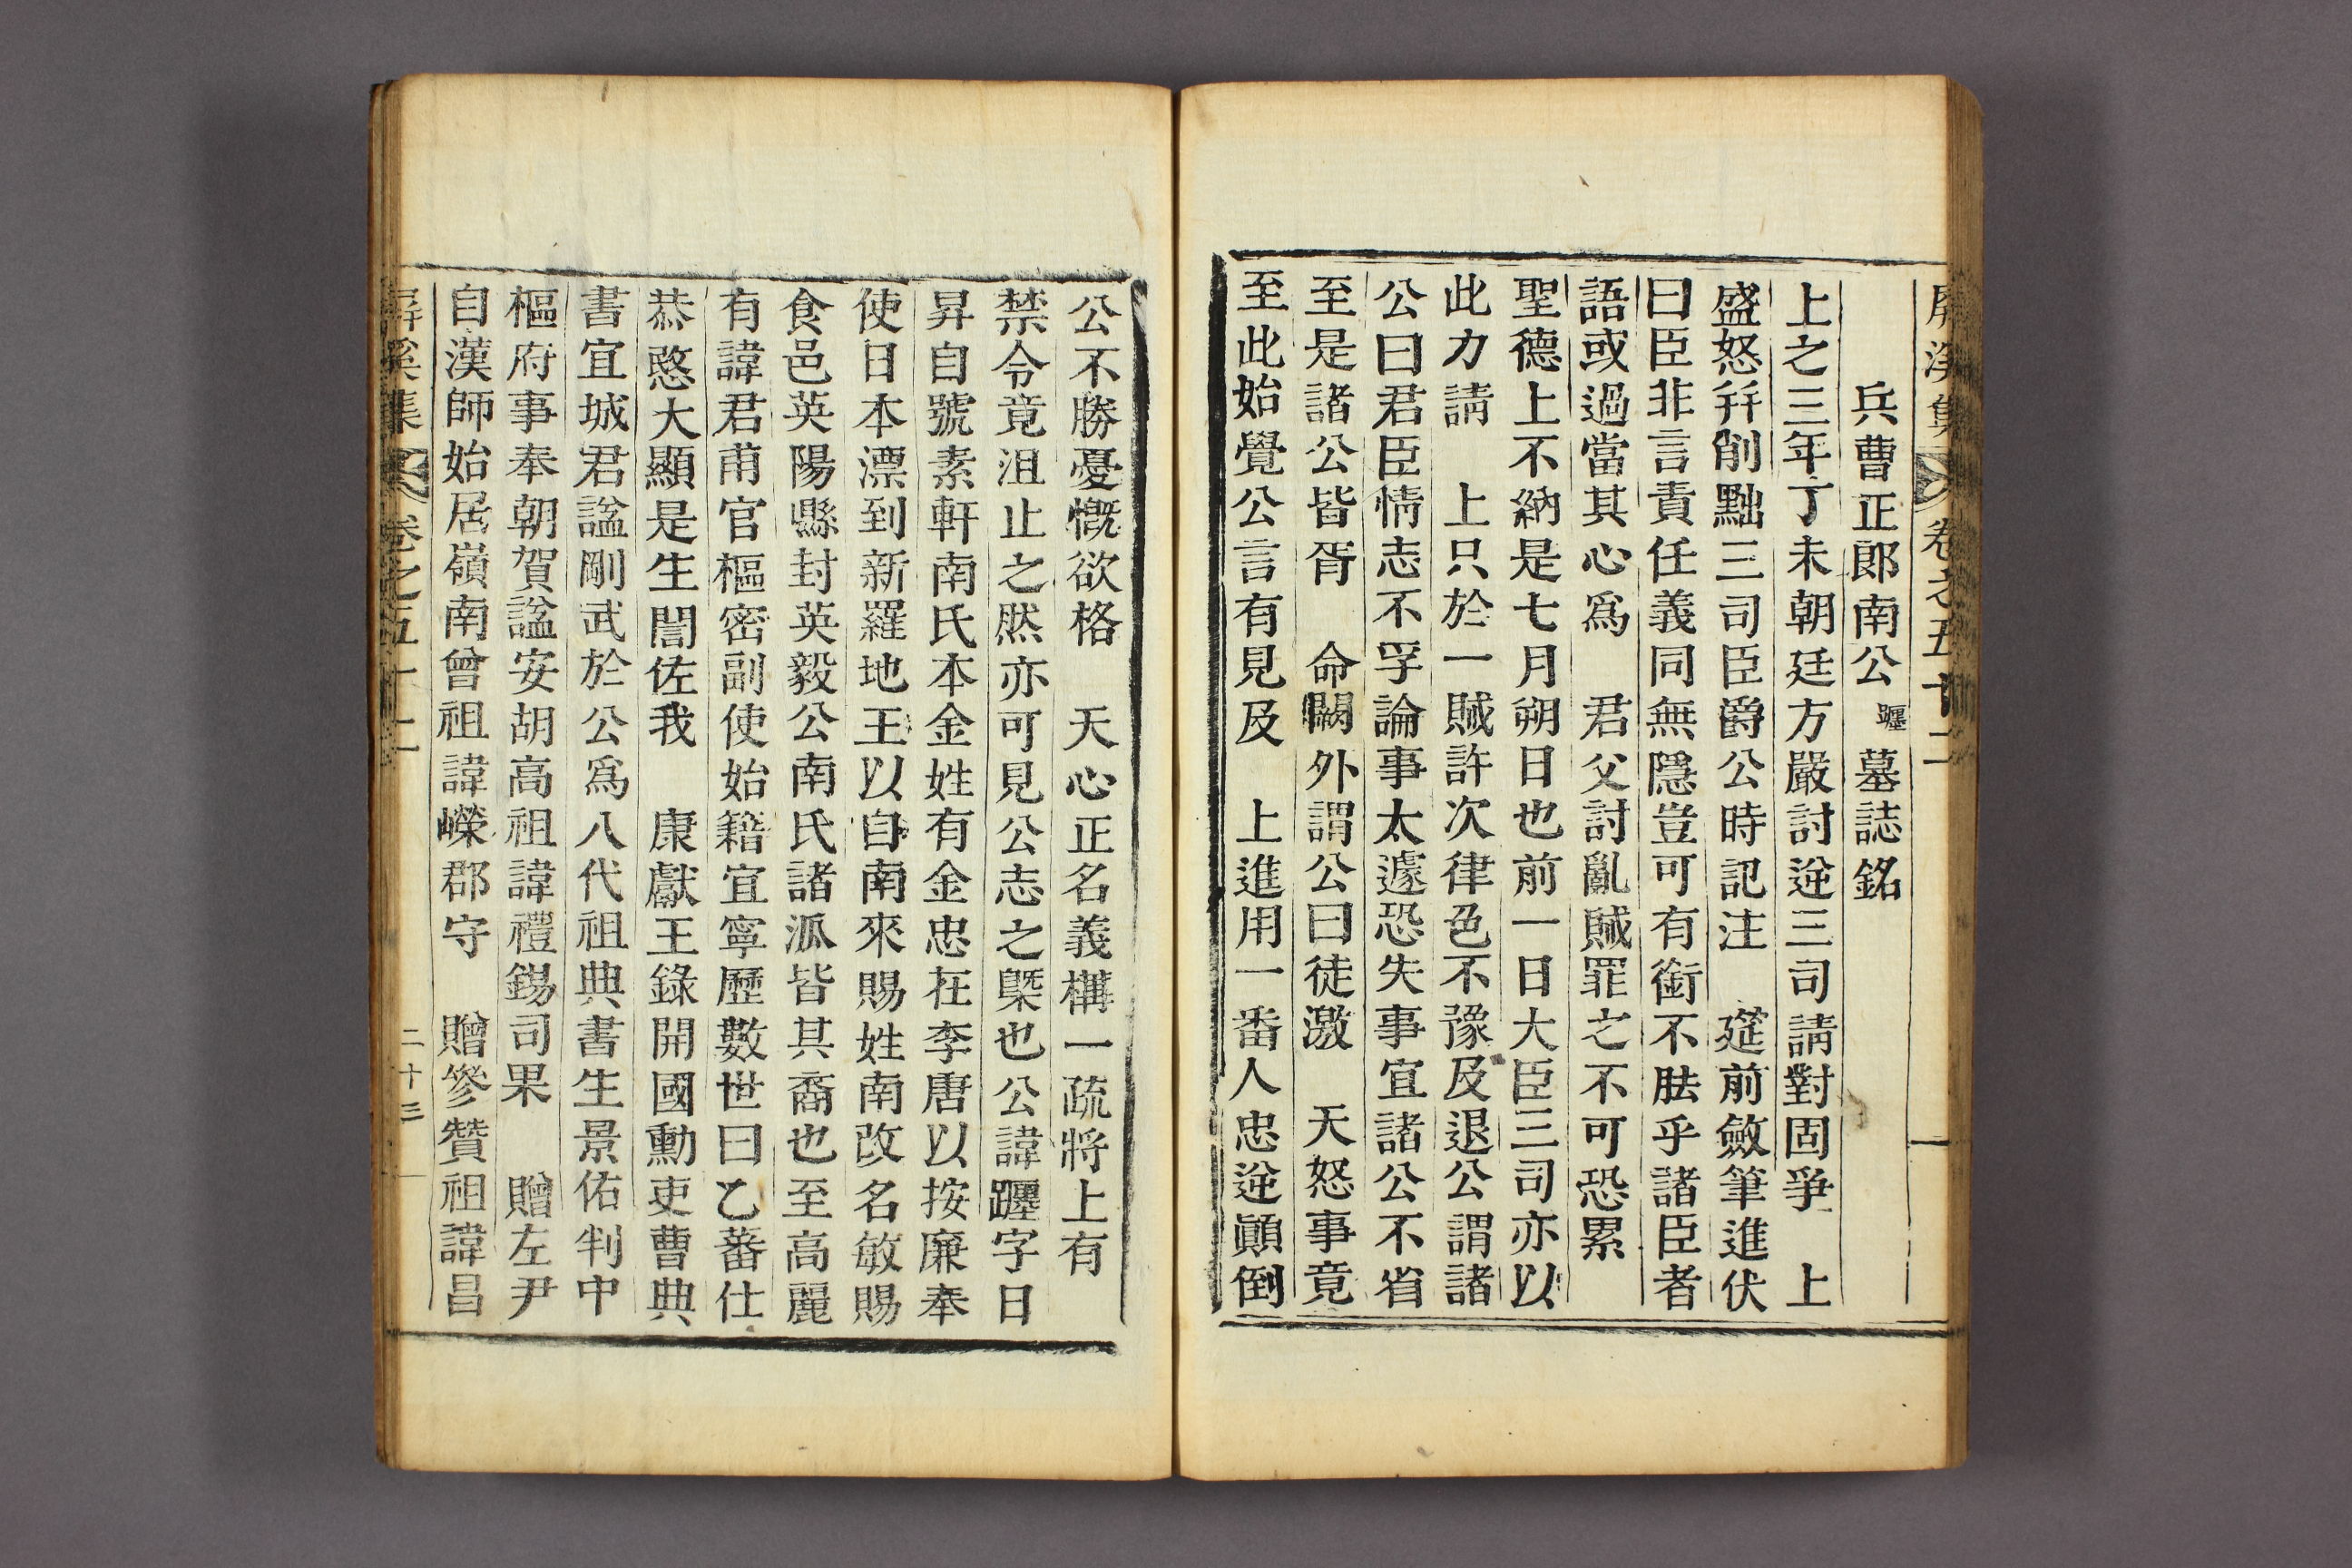 屛溪集 卷之五十二
兵曹正郞南公躔墓誌銘
上之三年丁未朝廷方嚴討逆三司請對固爭 上
盛怒幷削黜三司臣爵公時記注 筵前斂筆進伏
曰臣非言責任義同無隱豈可有銜不肰乎諸臣者
語或過當其心爲 君父討亂賊罪之不可恐累
聖德上不納是七月朔日也前一日大臣三司亦以
此力請 上只於一賊許次律色不豫及退公謂諸
公曰君臣情志不孚論事太遽恐失事宜諸公不省
至是諸公皆胥 命闕外謂公曰徒激 天怒事竟
至此始覺公言有見及 上進用一番人忠逆顚倒
公不勝憂慨欲格 天心正名義構一疏將上有
禁令竟沮止之然亦可見公志之槩也公諱躔字日
昇自號素軒南氏本金姓有金忠在李唐以按廉奉
使日本漂到新羅地王以自南來賜姓南改名敏賜
食邑英陽縣封英毅公南氏諸派皆其裔也至高麗
有諱君甫官樞密副使始籍宜寧歷數世曰乙蕃仕
恭愍大顯是生誾佐我 康獻王錄開國勳吏曹典
書宜城君諡剛武於公爲八代祖典書生景佑判中
樞府事奉朝賀諡安胡高祖諱禮錫司果 贈左尹
自漢師始居嶺南曾祖諱嶸郡守 贈參贊祖諱昌
屛溪集 卷之五十二 二十三